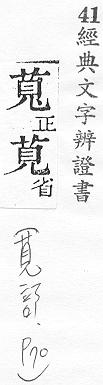 41 經典文字辨證書
萈正莧省
(萈部. P70)